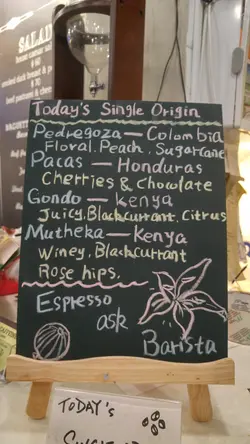 SALAD
Today's Single Origin
Pedregoza — Colombia
Floral. Peach. Sugarcane
Pacas — Honduras
Cherries & Chocolate
Gondo — Kenya
Juicy. Blackcurrant. Citrus
Mutheka — Kenya
Winey. Blackcurrant
Rose hips.
Espresso
ask
Barista
TODAY'S